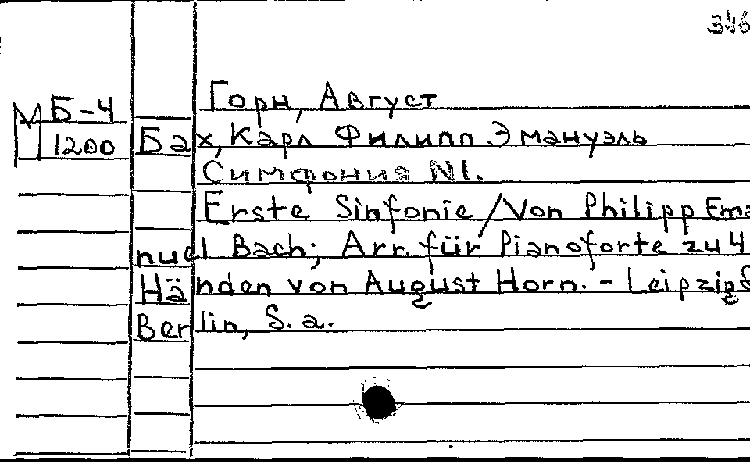 346
Горн, Август
М Б-4
1200 Бах, Карл Филипп Эмануэль
Симфония N1.
Erste Sinfonie / Von Philipp Ema
nuel Bach; Arr. für Pianoforte zu 4
Händen von August Horn. - Leipzig &
Berlin, S. a.